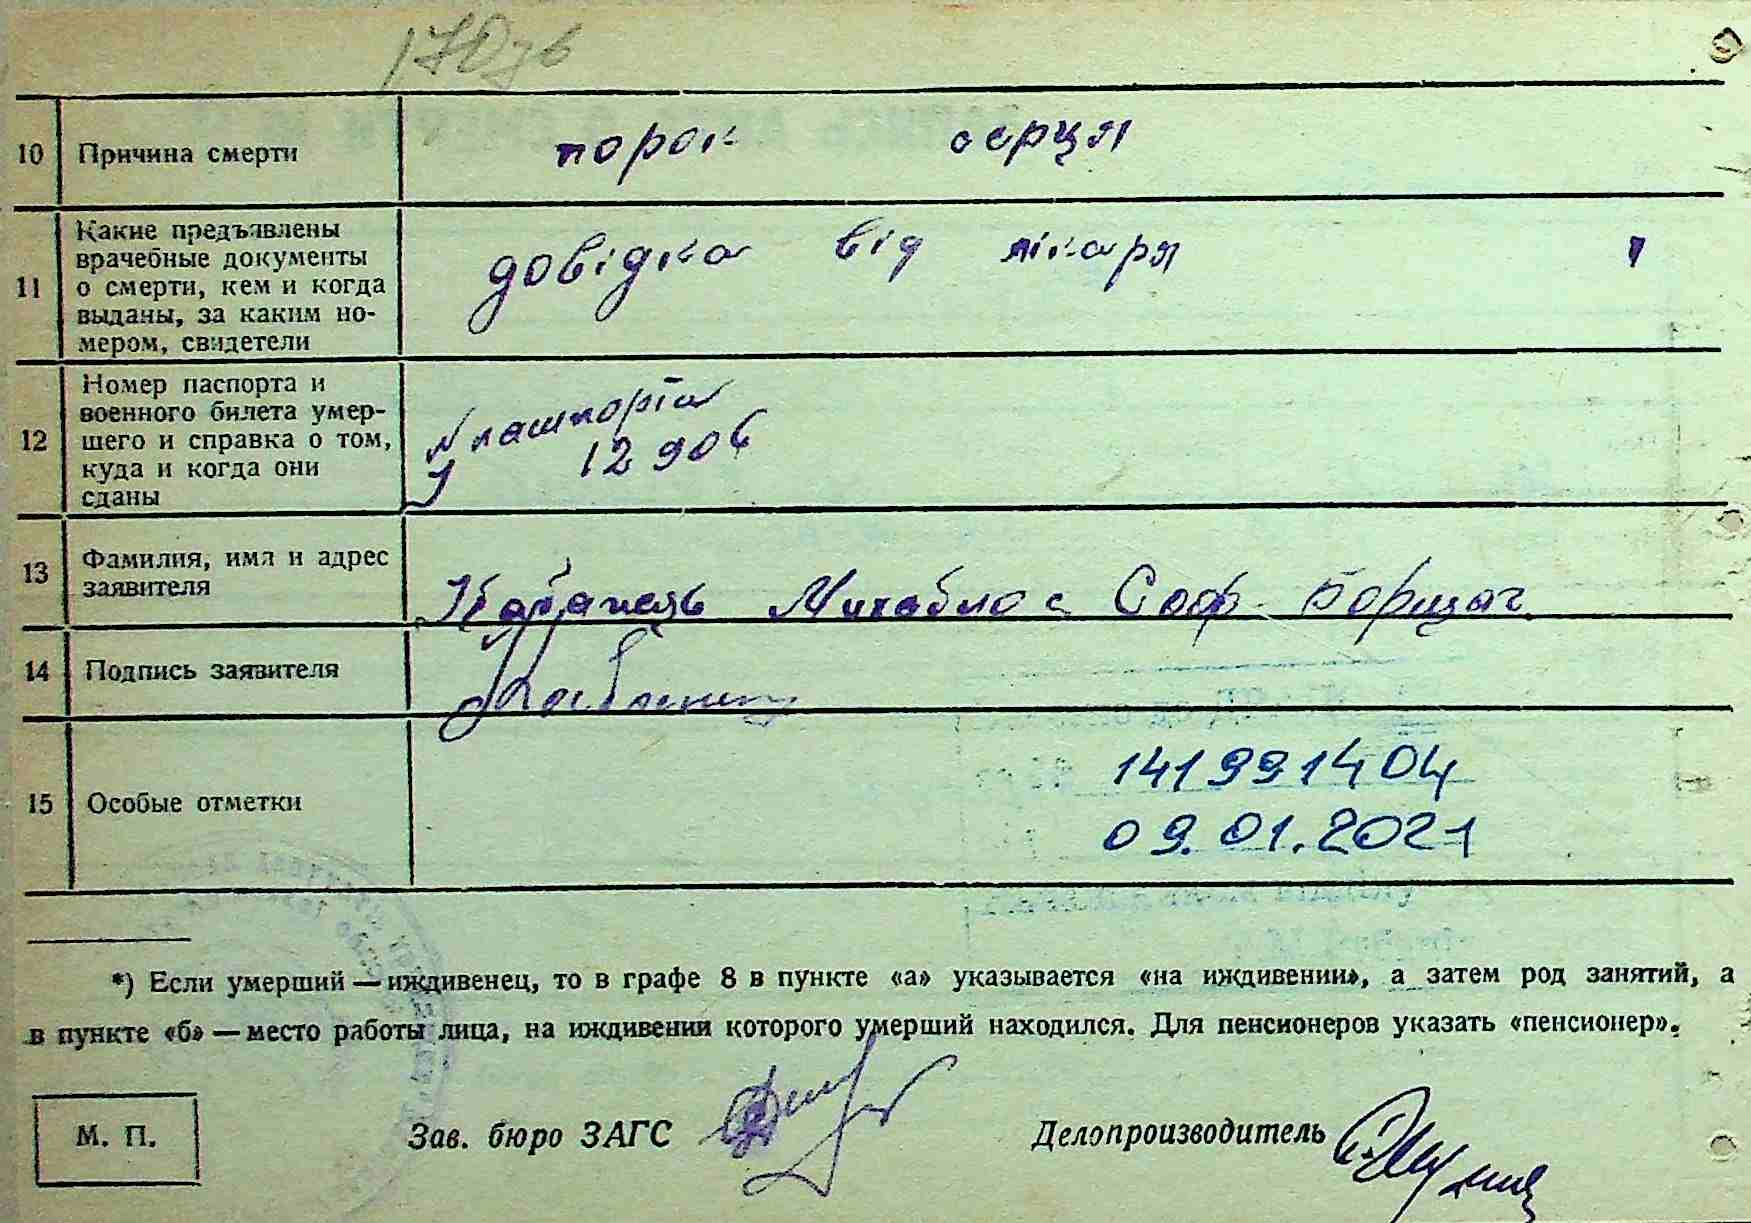 10 Причина смерти порок серця
11 Какие предъявлены
врачебные документы
о смерти, кем и когда
выданы, за каким но-
мером, свидетели
довідка від лікаря
12 Номер паспорта и
военного билета умер-
шего и справка о том,
куда и когда они
сданы
№ пашпорта
12906
13 Фамилия, имя и адрес
заявителя
Михайло с Соф Борщаг
14 Подпись заявителя
15 Особые отметки
141991404
09.01.2021
*) Если умерший — иждивенец, то в графе 8 в пункте «а» указывается «на иждивении», а затем род занятий, а
в пункте «б» — место работы лица, на иждивении которого умерший находился. Для пенсионеров указать «пенсионер».
М. П.
Зав. бюро ЗАГС
Делопроизводитель